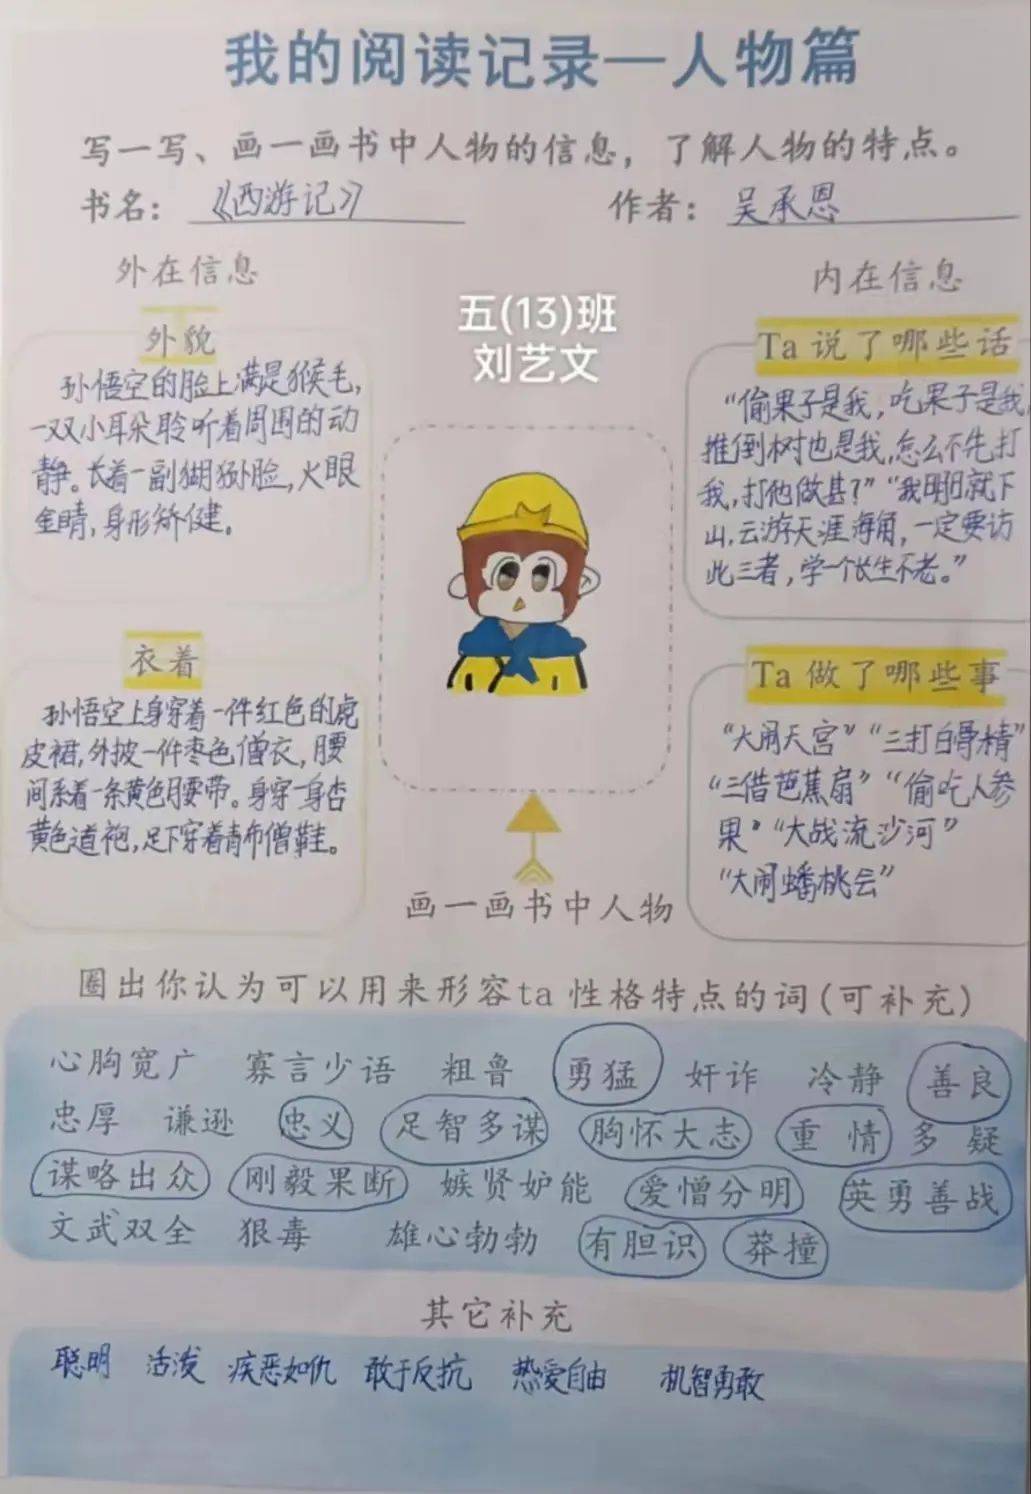 我的阅读记录—人物篇
写一写、画一画书中人物的信息，了解人物的特点。
书名：《西游记》 作者：吴承恩
外在信息
外貌
孙悟空的脸上满是猴毛，
一双小耳朵聆听着周围的动
静。长着一副猢狲脸，火眼
金睛，身形矫健。
衣着
孙悟空上身穿着一件红色的虎
皮裙，外披一件枣色僧衣，腰
间系着一条黄色腰带。身穿一身杏
黄色道袍，足下穿着青布僧鞋。
五(13)班
刘艺文
画一画书中人物
内在信息
Ta 说了哪些话
“偷果子是我，吃果子是我
推倒树也是我，怎么不先打
我，打他做甚？”“我明日就下
山，云游天涯海角，一定要访
此三者，学一个长生不老。”
Ta 做了哪些事
“大闹天宫”“三打白骨精”
“三借芭蕉扇”“偷吃人参
果”“大战流沙河”
“大闹蟠桃会”
圈出你认为可以用来形容ta性格特点的词(可补充)
心胸宽广 寡言少语 粗鲁 勇猛 奸诈 冷静 善良
忠厚 谦逊 忠义 足智多谋 胸怀大志 重情 多疑
谋略出众 刚毅果断 嫉贤妒能 爱憎分明 英勇善战
文武双全 狠毒 雄心勃勃 有胆识 莽撞
其它补充
聪明 活泼 疾恶如仇 敢于反抗 热爱自由 机智勇敢